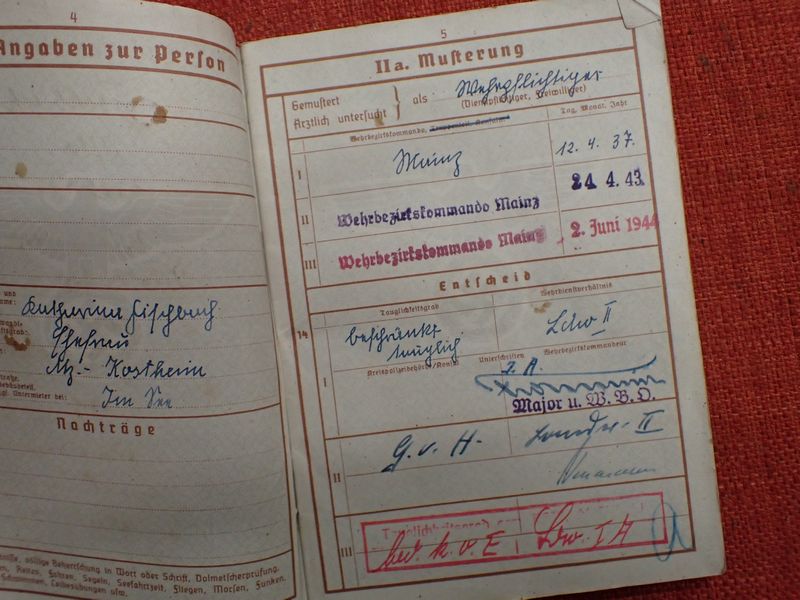 4
Angaben zur Person
und
name:
Katharina Fischbach
Ehefrau
Mz.- Kostheim
Im See
Nachträge
nisse, völlige Beherrschung in Wort oder Schrift, Dolmetscherprüfung.
Reiten, Fahren, Segeln, Seefahrtzeit, Fliegen, Morsen, Funken.
Schwimmen, Leibesübungen usw.
5
IIa. Musterung
Gemustert
Ärztlich untersucht
als
Wehrpflichtiger
(Dienstpflichtiger, Freiwilliger)
Wehrbezirkskommando, Truppenteil, Konsulat
Tag, Monat, Jahr
I
Mainz
12. 4. 37.
II
Wehrbezirkskommando Mainz
24. 4. 43.
III
Wehrbezirkskommando Mainz
2. Juni 1944
Entscheid
Tauglichkeitsgrad
Wehrdienstverhältnis
14
beschränkt
tauglich
Ldw II
Kreispolizeibehörde/Konsul
Unterschriften
Wehrbezirkskommandeur
I
I. A.
Major u. W.B.O.
II
G. v. H.
Landw. II
III
Tauglichkeitsgrad
bed. k. v. E
Ldw. I A